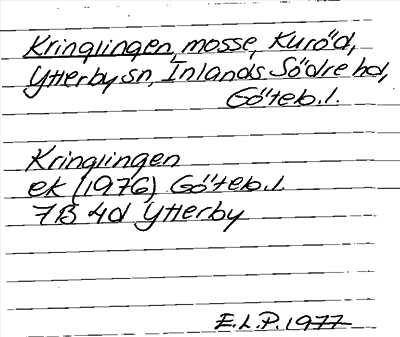 Kringlingen, mosse, Kuröd,
Ytterby sn, Inlands Södre hd,
Göteb.l.
Kringlingen
ek (1976) Göteb.l.
7B 4d Ytterby
E.L.P. 1977